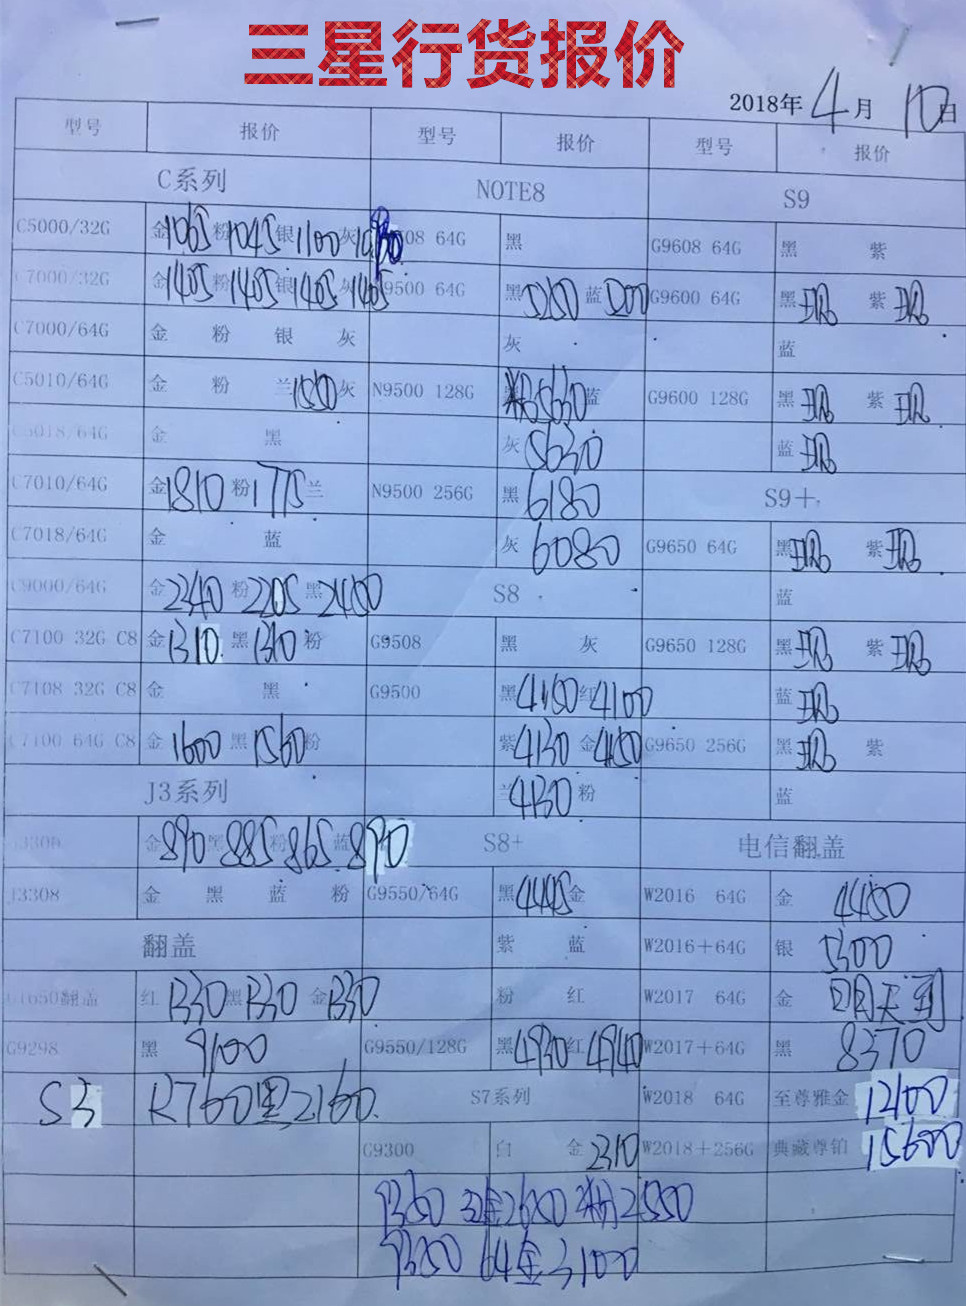 三星行货报价
2018年 4月 10日
型号 报价 型号 报价 型号 报价
C系列 NOTE8 S9
C5000/32G 金1065 粉1045 银1100 灰 08 64G 黑 G9608 64G 黑 紫
C7000/32G 金1405 粉1405 银1405 灰1405 9500 64G 黑5250 蓝5200 G9600 64G 黑现 紫现
C7000/64G 金 粉 银 灰 灰 蓝
C5010/64G 金 粉 兰1550 灰 N9500 128G 粉5630 蓝 G9600 128G 黑现 紫现
C5018/64G 金 黑 灰5630 蓝现
C7010/64G 金1810 粉1775 兰 N9500 256G 黑6180 S9+
C7018/64G 金 蓝 灰6080 G9650 64G 黑现 紫现
C9000/64G 金2240 粉2205 黑2400 S8 蓝
C7100 32G C8 金1310 黑1310 粉 G9508 黑 灰 G9650 128G 黑现 紫现
C7108 32G C8 金 黑 G9500 黑4150 红4100 蓝现
C7100 64G C8 金1600 黑1560 粉 紫4130 金4150 G9650 256G 黑现 紫
J3系列 兰4130 粉 蓝
J3300 金890 黑885 粉865 蓝890 S8+ 电信翻盖
J3308 金 黑 蓝 粉 G9550/64G 黑4445 金 W2016 64G 金 4450
翻盖 紫 蓝 W2016+64G 银 5300
G1650翻盖 红1330 黑1330 金1330 粉 红 W2017 64G 金 明天到
G9298 黑 9100 G9550/128G 黑4930 红4940 W2017+64G 黑 8370
S3 R760黑2160 S7系列 W2018 64G 至尊雅金 12100
G9300 白 金2310 W2018+256G 典藏尊铂 15600
9350 金2650 粉2550
9350 64金3100